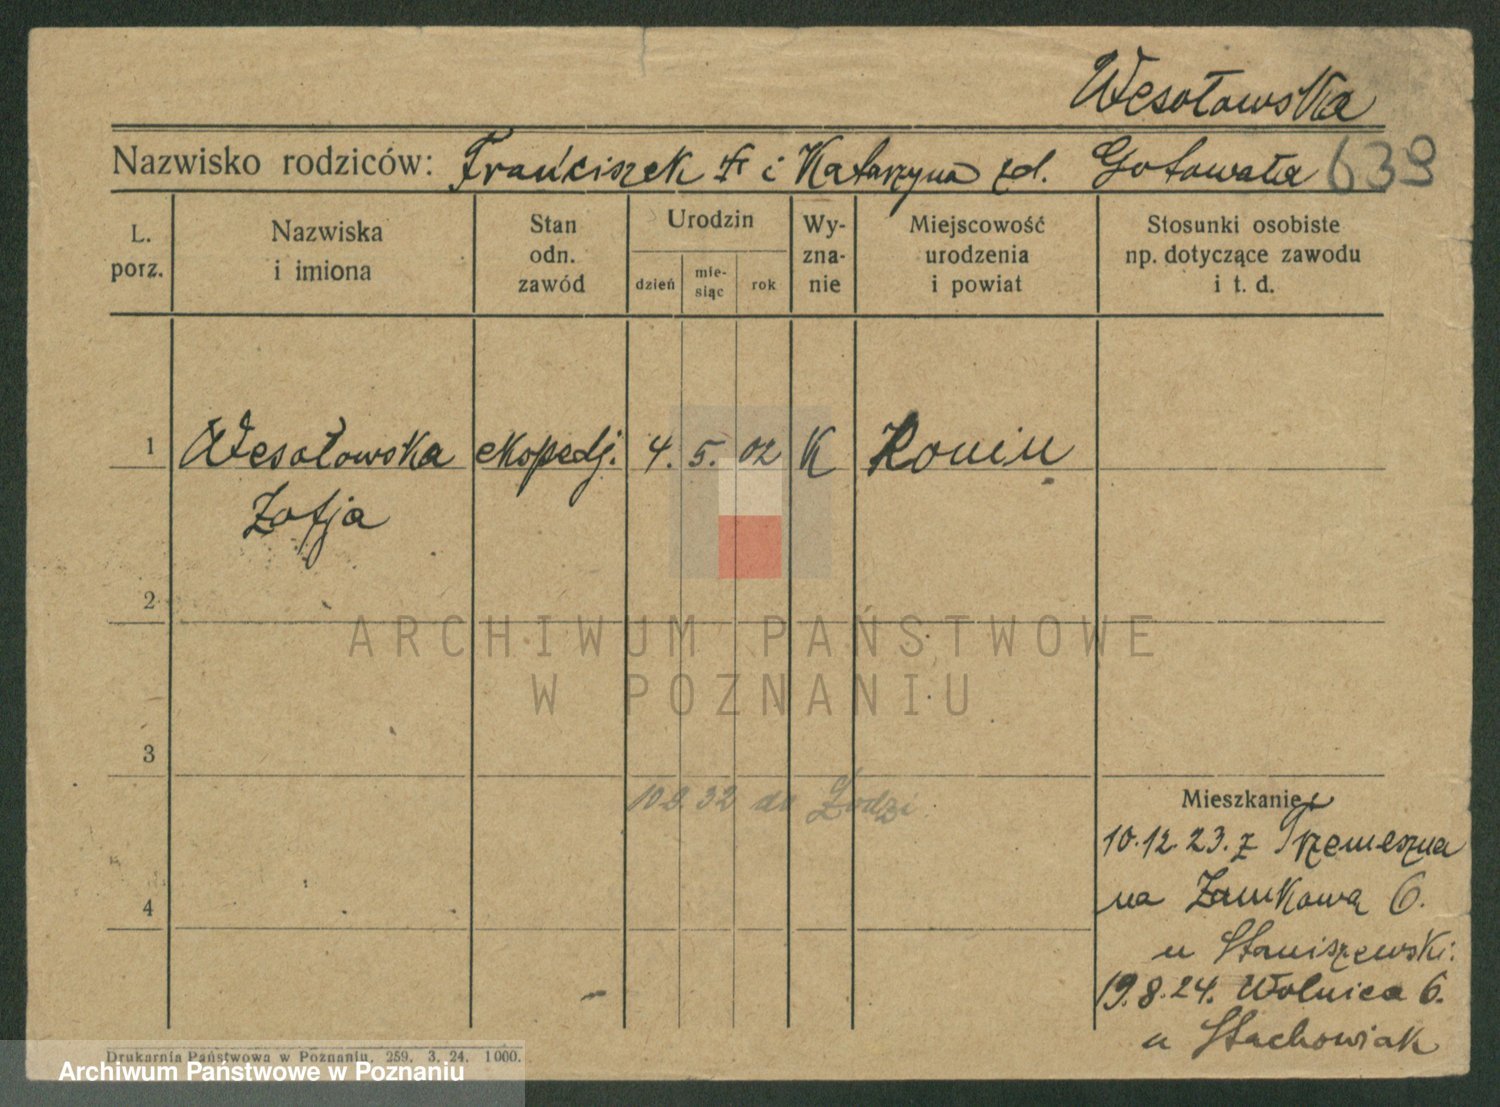 Wesołowska
Nazwisko rodziców: Franciszek i Katarzyna zd. Gotowała 639
L. porz.
Nazwiska i imiona
Stan odn. zawód
Urodzin
dzień
mie-siąc
rok
Wy-zna-nie
Miejscowość urodzenia i powiat
Stosunki osobiste np. dotyczące zawodu i t. d.
1 Wesołowska ekspedj. 4. 5. 02 K Konin
Zofja
2
ARCHIWUM PAŃSTWOWE
W POZNANIU
3
10.9.32 do Łodzi
Mieszkanie
10.12.23. z Trzemeszna
na Zamkową 6.
u Staniszewski.
4
19.8.24. Wolnica 6.
u Stachowiak
Drukarnia Państwowa w Poznaniu, 259. 3. 24. 1000.
Archiwum Państwowe w Poznaniu